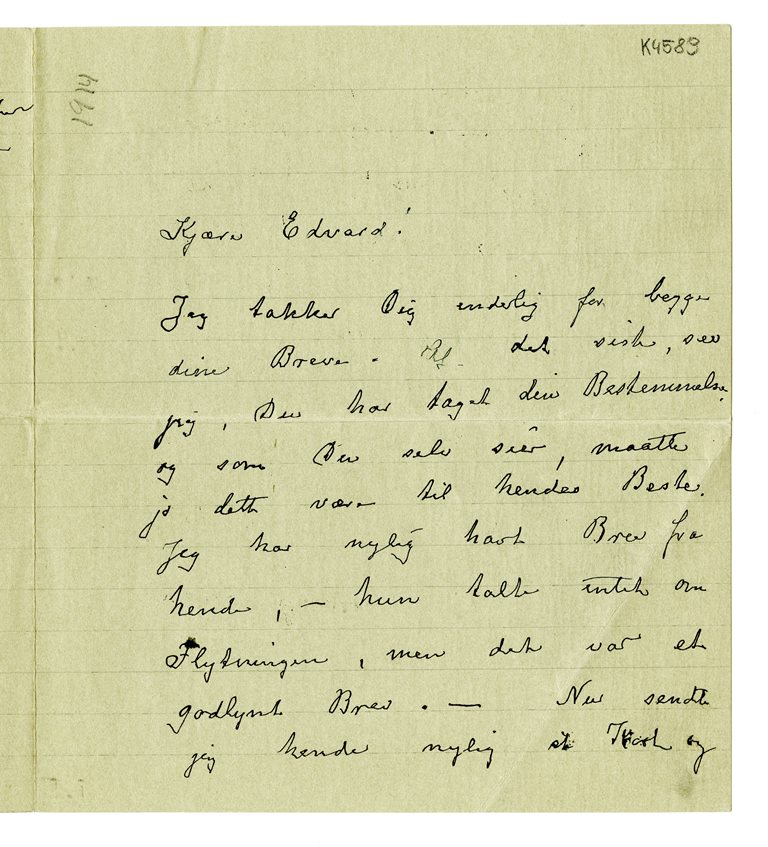 K4589
1914
Kjære Edvard!
Jeg takker Dig inderlig for begge
dine Breve. Af det siste, ser
jeg, Du har taget din Bestemmelse,
og som Du selv siêr, maatte
jo dette være til hendes Beste.
Jeg har nylig havt Brev fra
hende, – hun talte intet om
Flytningen, men det var et
godlynt Brev. — Nu sendte
jeg hende nylig et Kort og